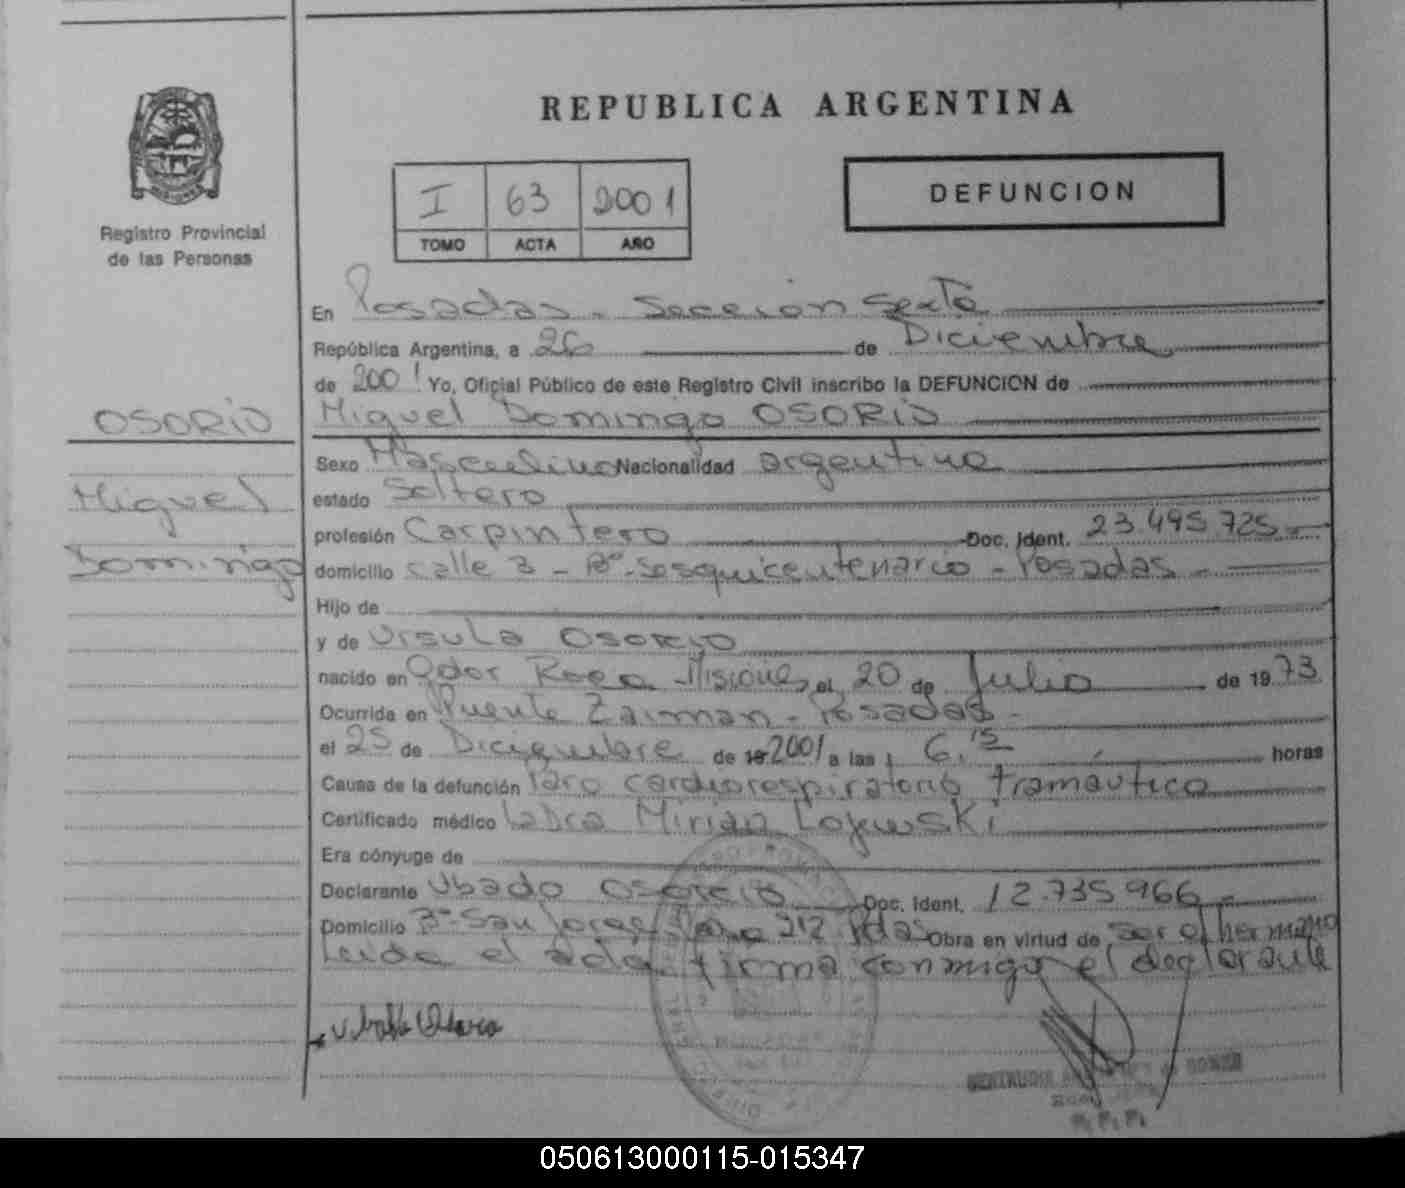 REPUBLICA ARGENTINA
I 63 2001
TOMO ACTA AÑO
DEFUNCION
Registro Provincial
de las Personas
OSORIO
Miguel
Domingo
En Posadas - Seccion Sexta
República Argentina, a 26 de Diciembre
de 2001 Yo, Oficial Público de este Registro Civil inscribo la DEFUNCION de
Miguel Domingo OSORIO
Sexo Masculino Nacionalidad argentina
estado Soltero
profesión Carpintero Doc. Ident. 23.495.725
domicilio Calle 3 - Bº Sesquicentenario - Posadas
Hijo de
y de Ursula OSORIO
nacido en Gdor Roca Misiones el 20 de Julio de 1973
Ocurrida en Puente Zaiman - Posadas
el 25 de Diciembre de 2001 a las 6,15 horas
Causa de la defunción Paro cardiorespiratorio tramáutico
Certificado médico la Dra Mirian Lojewski
Era cónyuge de
Declarante Ubado OSORIO Doc. Ident. 12.735.966
Domicilio Bº San Jorge 212 Pdas Obra en virtud de ser el hermano
Leida el acta firma conmigo el declarante
050613000115-015347